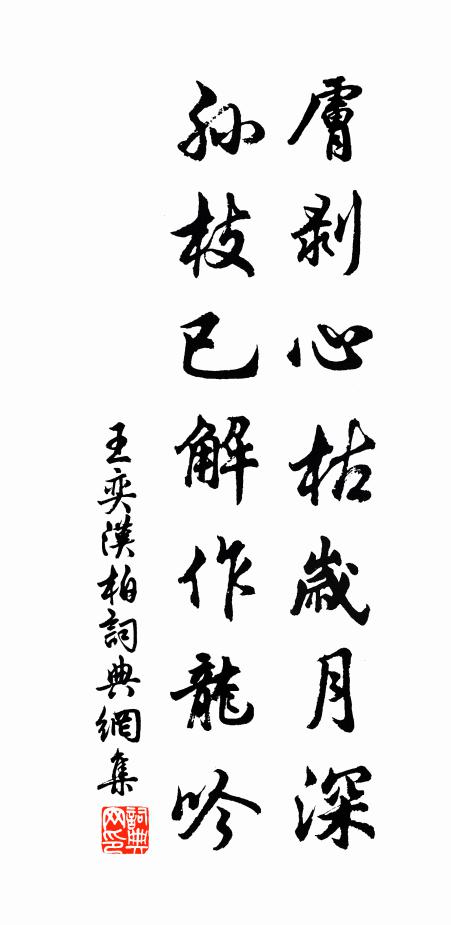 膚剥心枯歲月深
孫枝已解作龍吟
王奕漢柏詞典網集
詞典网印